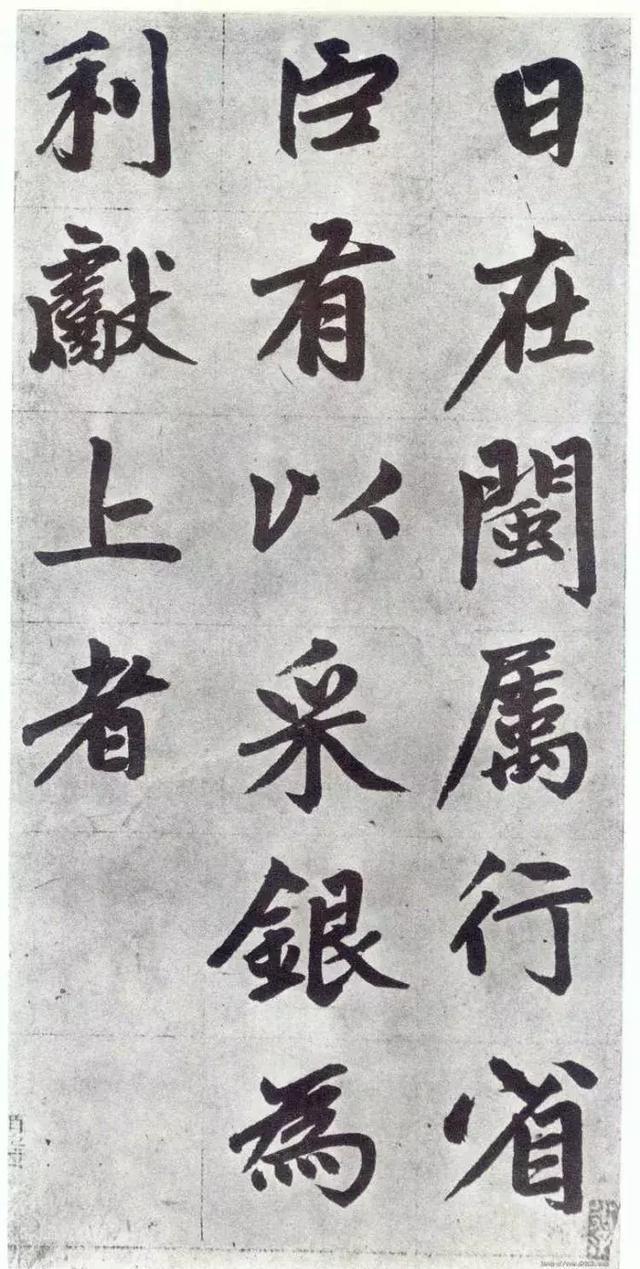 日在閩屬行省
臣有以采銀為
利獻上者